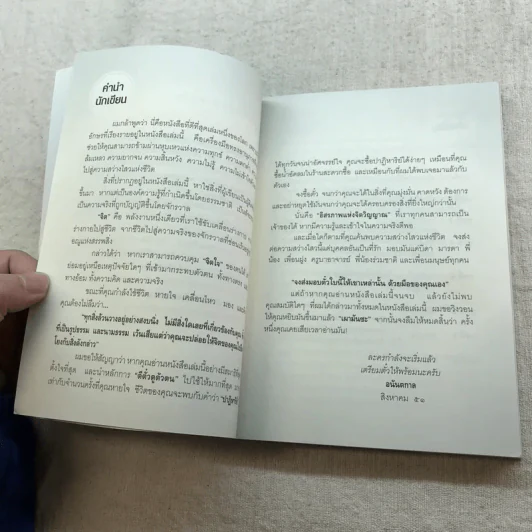 คำนำ
นักเขียน
ผมกล้าพูดว่า นี่คือหนังสือที่ดีที่สุดเล่มหนึ่งของโลก
อักษรที่เรียงรายอยู่ในหนังสือเล่มนี้ คือเครื่องมือทรง
ช่วยให้คุณสามารถข้ามผ่านหุบเหวแห่งความทุกข์ ความ
ล้มเหลว ความยากจน ความสิ้นหวัง ความไม่รู้ ความ
ไปสู่ความสว่างไสวแห่งชีวิต
สิ่งที่ปรากฏอยู่ในหนังสือเล่มนี้ หาใช่สิ่งที่ผู้เขียน
ขึ้นมา หากแต่เป็นองค์ความรู้ที่กำเนิดขึ้นโดยธรรมชาติ
ความจริงที่ถูกบัญญัติขึ้นโดยจักรวาล
"จิต" คือ พลังงานหนึ่งเดียวที่เราใช้ขับเคลื่อนร่างกาย
ร่างกายไปสู่ชีวิต จากชีวิตไปสู่ความจริงของจักรวาล
อณูแห่งสรรพสิ่ง
กล่าวได้ว่า หากเราสามารถควบคุม "จิตใจ" ของตนได้
ย่อมอยู่เหนือเหตุปัจจัยใดๆ ที่เข้ามากระทบตัวตน ทั้งทางตรง
ทางอ้อม ทั้งความคิด และความจริง
ขณะที่คุณกำลังใช้ชีวิต หายใจ เคลื่อนไหว มอง
คุณต้องไม่ลืมว่า...
"ทุกสิ่งล้วนวางอยู่อย่างสงบนิ่ง ไม่มีสิ่งใดเลยที่เกี่ยวข้องกับคุณ
ที่เป็นรูปธรรม และนามธรรม เว้นเสียแต่ว่าคุณจะปล่อยให้จิตของคุณ
โยงกับสิ่งดังกล่าว"
ผมขอให้สัญญาว่า หากคุณอ่านหนังสือเล่มนี้อย่างมีสมาธิ
ตั้งใจที่สุด และนำหลักการ "ตีตั๋วดูตัวตน" ไปใช้ให้มากที่สุด
เท่ากับจำนวนครั้งที่คุณหายใจ ชีวิตของคุณจะพบกับคำว่า
ได้ทุกวันจนน่าอัศจรรย์ใจ คุณจะซื้อปาฏิหาริย์ได้ง่ายๆ เหมือนที่คุณ
ซื้อน้ำอัดลมในร้านสะดวกซื้อ และเหมือนกับที่ผมได้พบเจอมาแล้วกับ
ตัวเอง
จงซื้อตั๋ว จนกว่าคุณจะได้ในสิ่งที่คุณมุ่งมั่น คาดหวัง ต้องการ
และอย่าหยุดใช้มันจนกว่าคุณจะได้ครอบครองสิ่งที่ยิ่งใหญ่กว่านั้น
นั่นคือ "อิสรภาพแห่งจิตวิญญาณ" ที่เราทุกคนสามารถเป็น
เจ้าของได้ หากมีความรู้และเข้าใจในความจริงดีพอ
และเมื่อใดก็ตามที่คุณค้นพบความสว่างไสวแห่งชีวิตแล้ว จงส่ง
ต่อความสว่างไสวนี้แด่บุคคลอันเป็นที่รัก มอบมันแด่บิดา มารดา พี่
น้อง เพื่อนฝูง ครูบาอาจารย์ พี่น้องร่วมชาติ และเพื่อนมนุษย์ทุกคน
"จงส่งมอบตั๋วใบนี้ให้เขาเหล่านั้น ด้วยมือของคุณเอง"
แต่ถ้าหากคุณอ่านหนังสือเล่มนี้จนจบ แล้วยังไม่พบ
คุณสมบัติใดๆ ที่ผมได้กล่าวมาทั้งหมดในหนังสือเล่มนี้ ผมขอวิงวอน
ให้คุณหยิบมันขึ้นมาแล้ว "เผามันซะ" จากนั้นจงลืมให้หมดสิ้นว่า ครั้ง
หนึ่งคุณเคยเสียเวลาอ่านมัน!
ละครกำลังจะเริ่มแล้ว
เตรียมตั๋วให้พร้อมนะครับ
อนันตกาล
สิงหาคม ๕๒